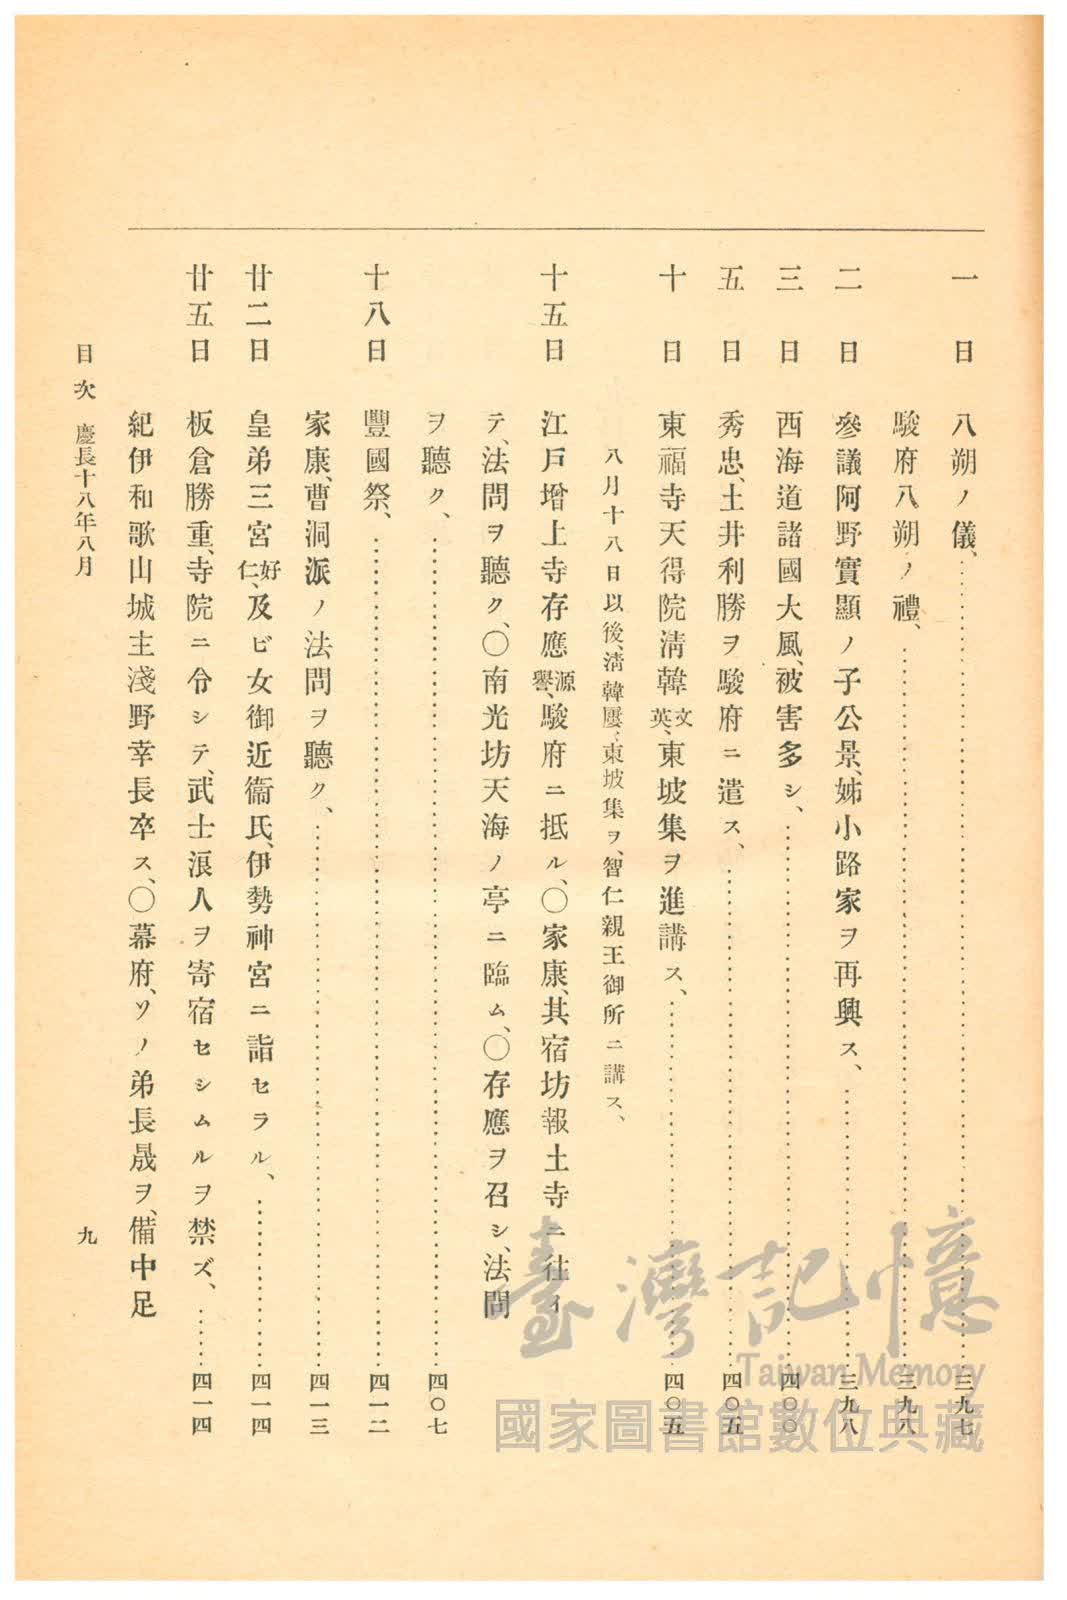 一日 八朔ノ儀、…………三九七
駿府八朔ノ禮、…………三九八
二日 參議阿野實顯ノ子公景、姊小路家ヲ再興ス、…………三九八
三日 西海道諸國大風、被害多シ、…………四〇〇
五日 秀忠、土井利勝ヲ駿府ニ遣ス、…………四〇五
十日 東福寺天得院淸韓文英、東坡集ヲ進講ス、…………四〇五
八月十八日以後、淸韓屢〻東坡集ヲ、智仁親王御所ニ講ス、
十五日 江戶增上寺存應源譽、駿府ニ抵ル、〇家康、其宿坊報土寺ニ往イ
テ、法問ヲ聽ク、〇南光坊天海ノ亭ニ臨ム、〇存應ヲ召シ、法問
ヲ聽ク、…………四〇七
十八日 豐國祭、…………四一二
家康、曹洞派ノ法問ヲ聽ク、…………四一三
廿二日 皇弟三宮好仁、及ビ女御近衞氏、伊勢神宮ニ詣セラル、…………四一四
廿五日 板倉勝重、寺院ニ令シテ、武士浪人ヲ寄宿セシムルヲ禁ズ、……四一四
紀伊和歌山城主淺野幸長卒ス、〇幕府、ソノ弟長晟ヲ、備中足
目次 慶長十八年八月 九
臺灣記憶
Taiwan Memory
國家圖書館數位典藏